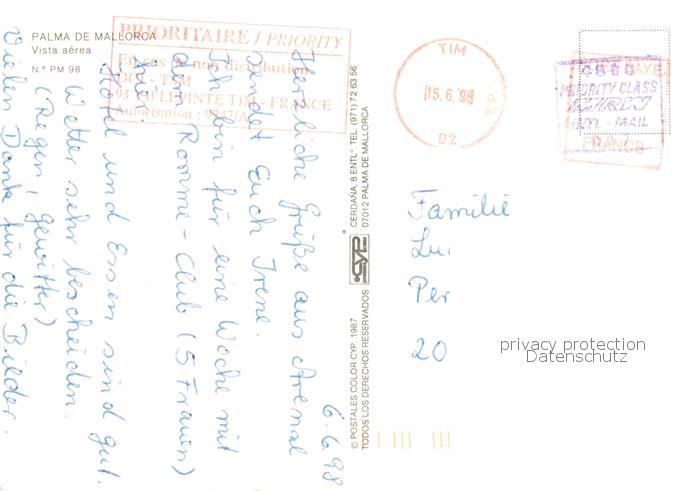 PALMA DE MALLORCA
Vista aérea
N.º PM 98
PRIORITAIRE / PRIORITY
En cas de non distribution
TIM
FRANCE
Autorisation :
6.6.98
Herzliche Grüße aus Arenal
sendet Euch Irene.
Ich bin für eine Woche mit
dem Romme-Club (5 Frauen)
hier.
Hotel und Essen sind gut.
Wetter sehr bescheiden.
(Regen, Gewitter)
Vielen Dank für die Bilder.
© POSTALES COLOR CYP, 1987
TODOS LOS DERECHOS RESERVADOS
CYP
CERDAÑA, 8 ENTLº TEL. (971) 72 63 56
07012 PALMA DE MALLORCA
TIM
15.6.98
02
PRIORITY CLASS
INTL - MAIL
FRANCE
Familie
Lu
Per
20
privacy protection
Datenschutz